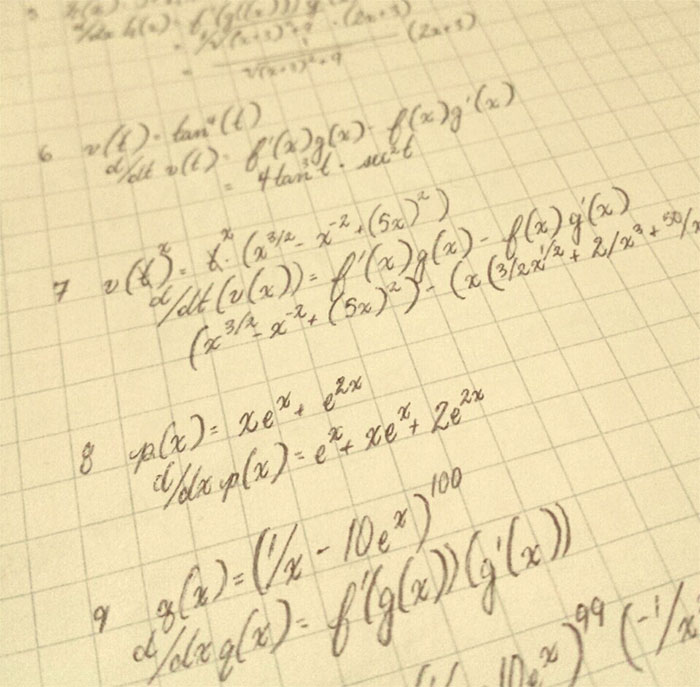 d/dx h(x) = f'(g(x))) g'
√(x+3)²+9 · (2x+3)
1
= (2x+3)
√(x+3)²+9
6 v(t) = tan⁴(t)
d/dt v(t) = f'(x)g(x) - f(x)g'(x)
= 4tan³t · sec²t
7 v(x) = x · (x^3/2 - x^-2 + (5x)²)
d/dt(v(x)) = f'(x)g(x) - f(x)g'(x)
(x^3/2 - x^-2 + (5x)²) - (x(3/2x^1/2 + 2/x³ + 50/x
8 p(x) = xe^x + e^2x
d/dx p(x) = e^x + xe^x + 2e^2x
9 q(x) = (1/x - 10e^x)^100
d/dx q(x) = f'(g(x))(g'(x))
10e^x)^99 (-1/x